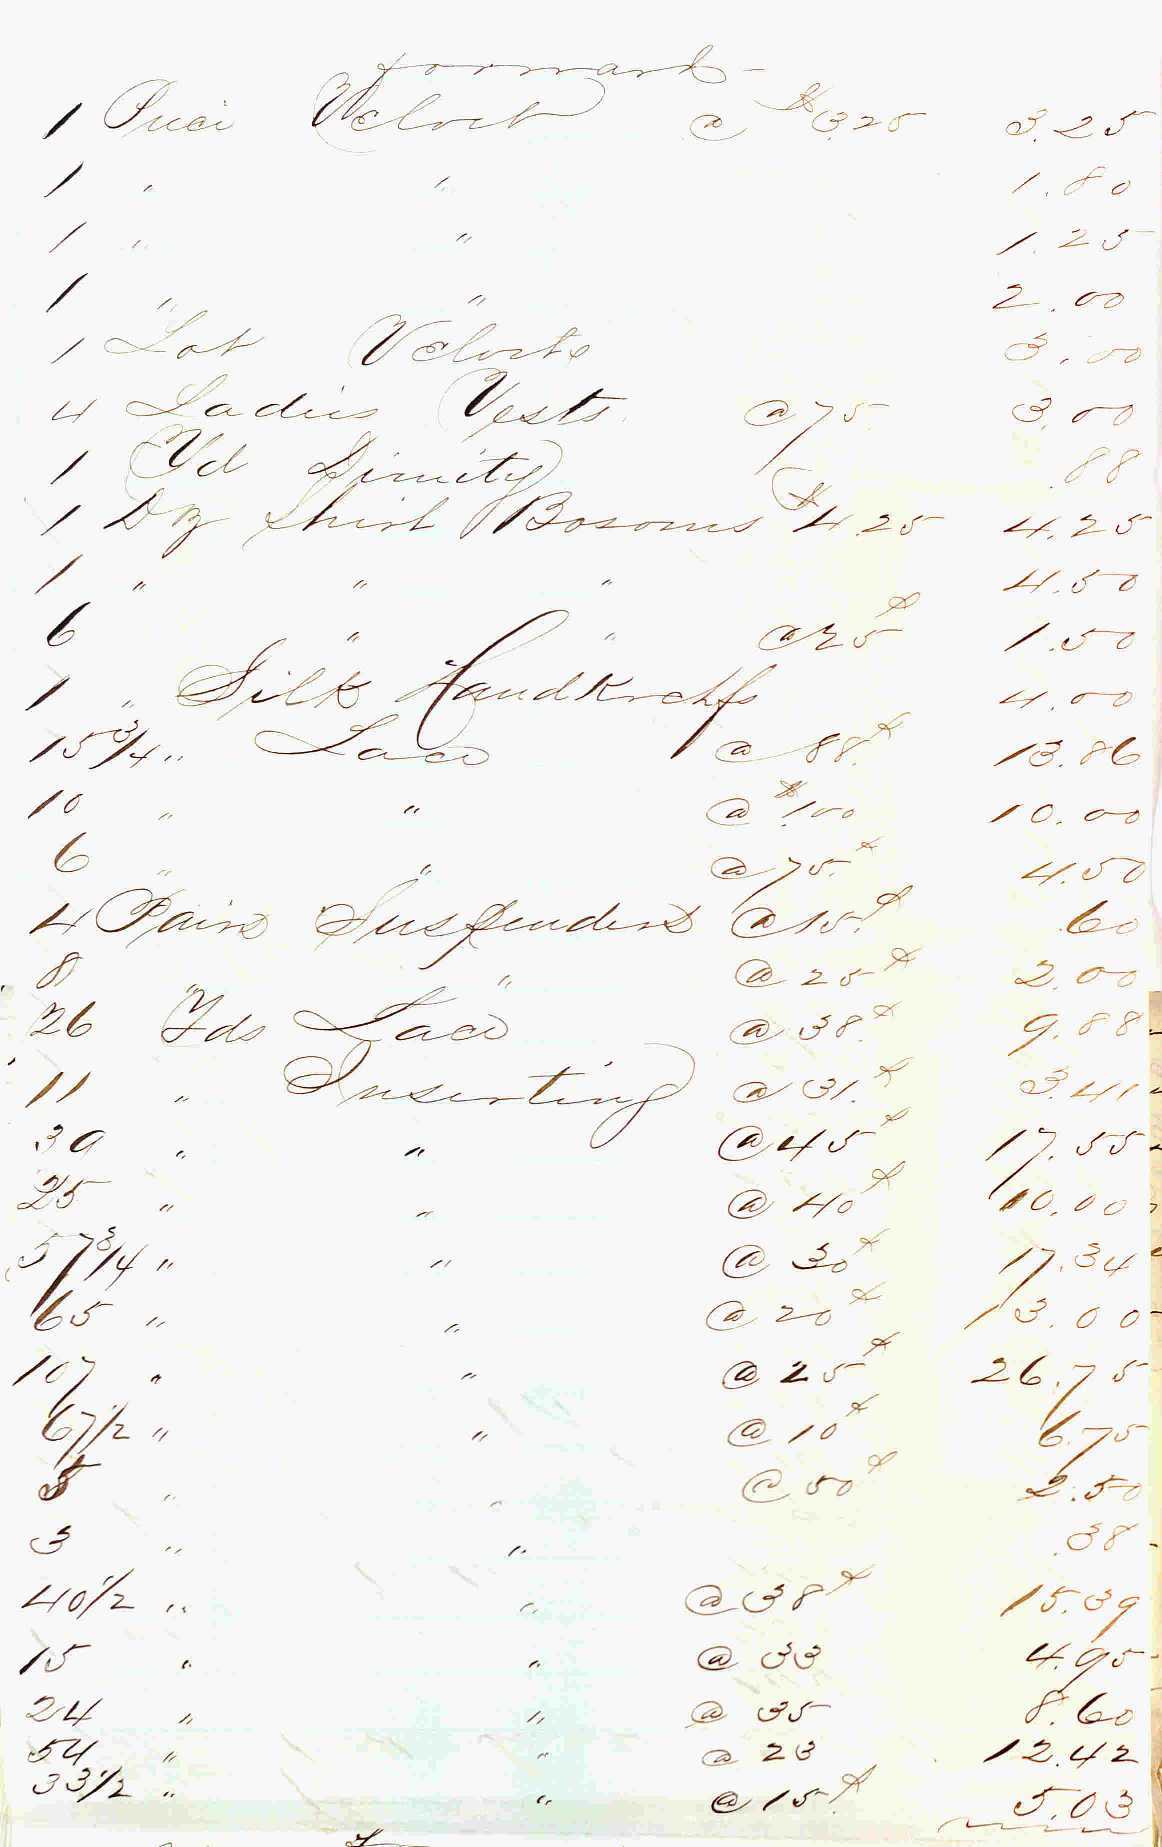 forward
1 Piece Velvet @ $3.25 3.25
1 " " 1.80
1 " " 1.25
1 " " 2.00
1 Lot Velvets 3.00
4 Ladies Vests @ 75 3.00
1 Yd Dimity .88
1 Dz Shirt Bosoms $4.25 4.25
1 " " " 4.50
6 " " @ 25¢ 1.50
1 " Silk Handkrchfs 4.00
15 3/4 " Lace @ 88¢ 13.86
10 " " @ $1.00 10.00
6 " " @ 75¢ 4.50
4 Pairs Suspenders @ 15¢ .60
8 " " @ 25¢ 2.00
26 Yds Lace @ 38¢ 9.88
11 " Inserting @ 31¢ 3.41
39 " " @ 45¢ 17.55
25 " " @ 40¢ 10.00
57 3/4 " " @ 30¢ 17.34
65 " " @ 20¢ 13.00
107 " " @ 25¢ 26.75
67 1/2 " " @ 10¢ 6.75
5 " " @ 50¢ 2.50
3 " " .38
40 1/2 " " @ 38¢ 15.39
15 " " @ 33 4.95
24 " " @ 35 8.60
54 " " @ 23 12.42
33 1/2 " " @ 15¢ 5.03